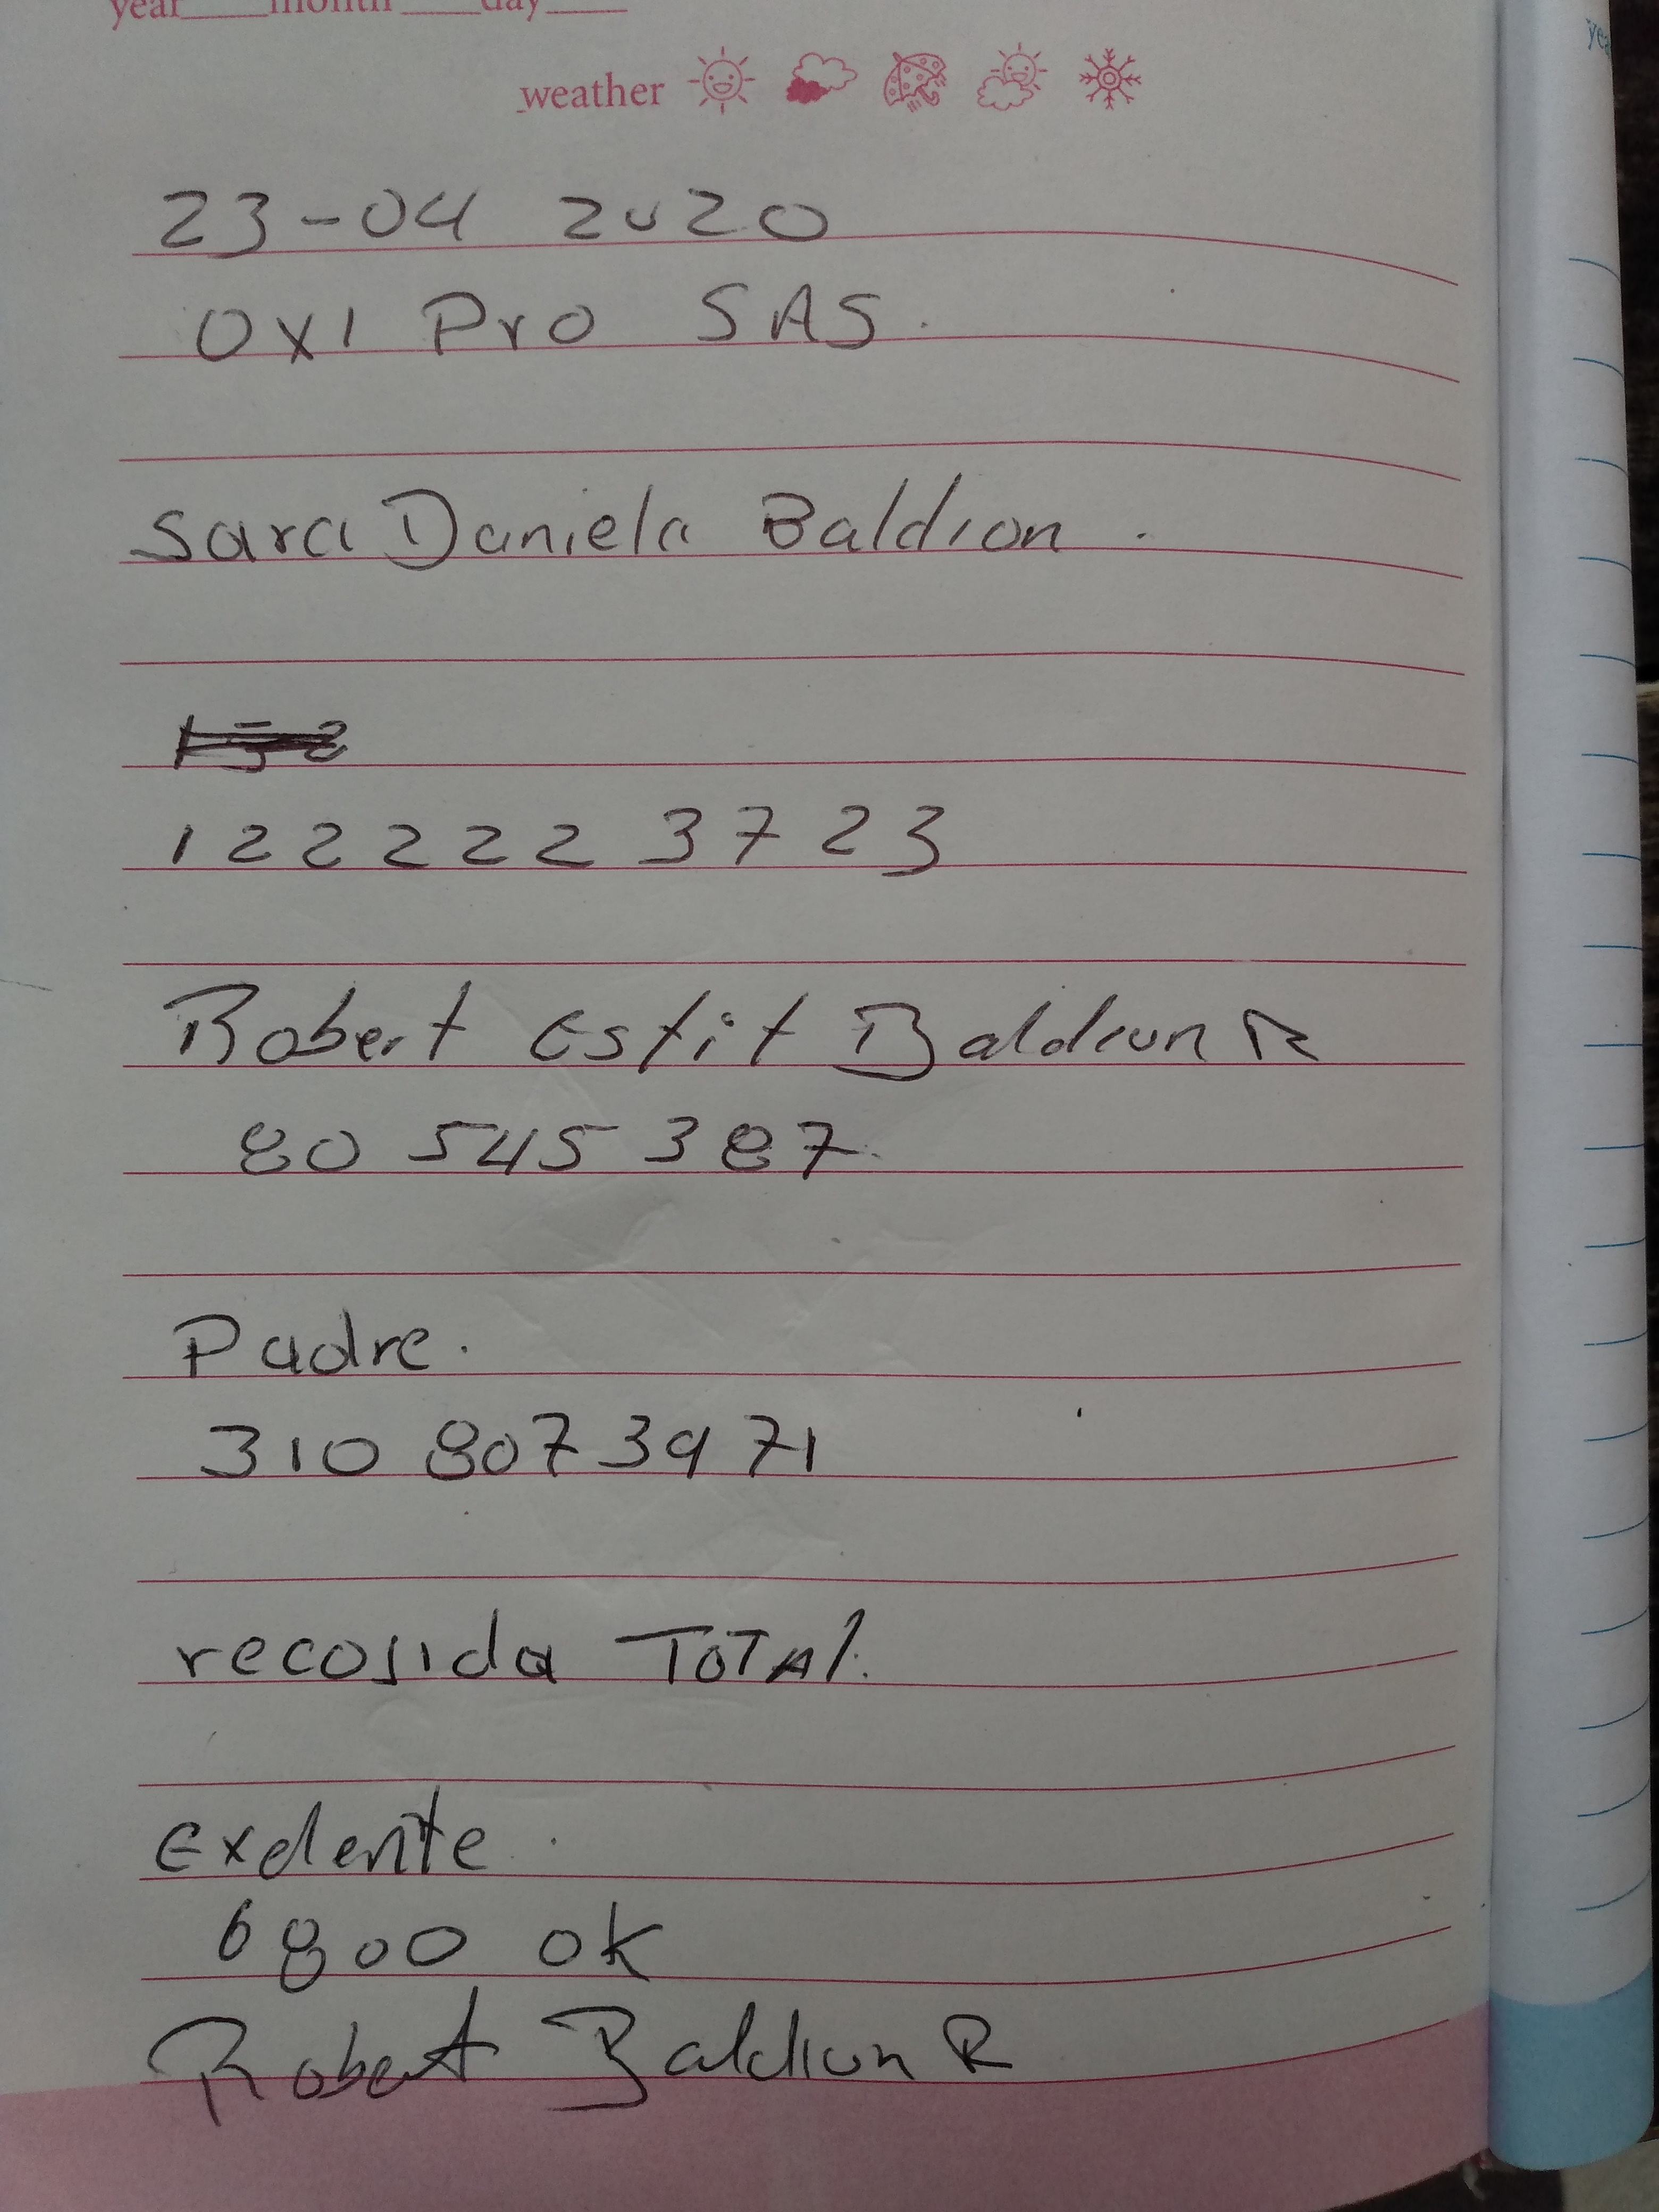 year____month____day____
weather
23-04 2020
OXI Pro SAS.
Sara Daniela Baldion.
122222 3723
Robert Estit Baldion R
80 545 387.
Padre.
310 807 39 71
recojida TOTAL.
Exdente.
6800 ok
Robert Baldion R